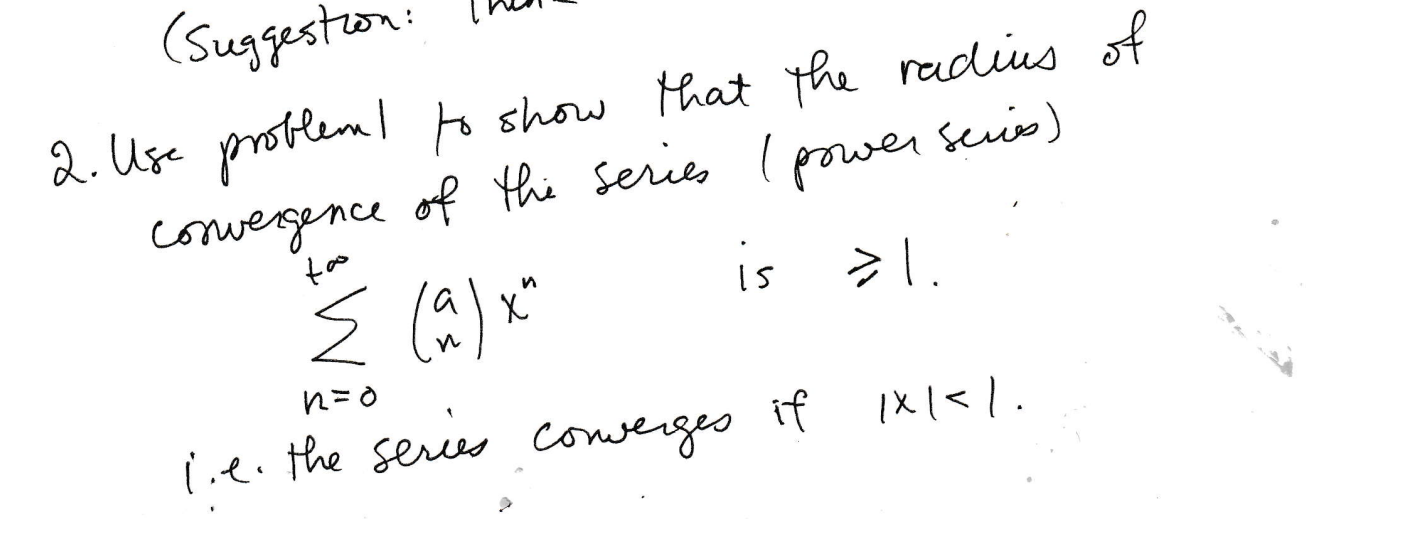 (Suggestion:
2. Use problem 1 to show that the radius of
convergence of the series (power series)
+∞
∑ (a n) xⁿ is ⩾ 1.
n=0
i.e. the series converges if |x| < 1.